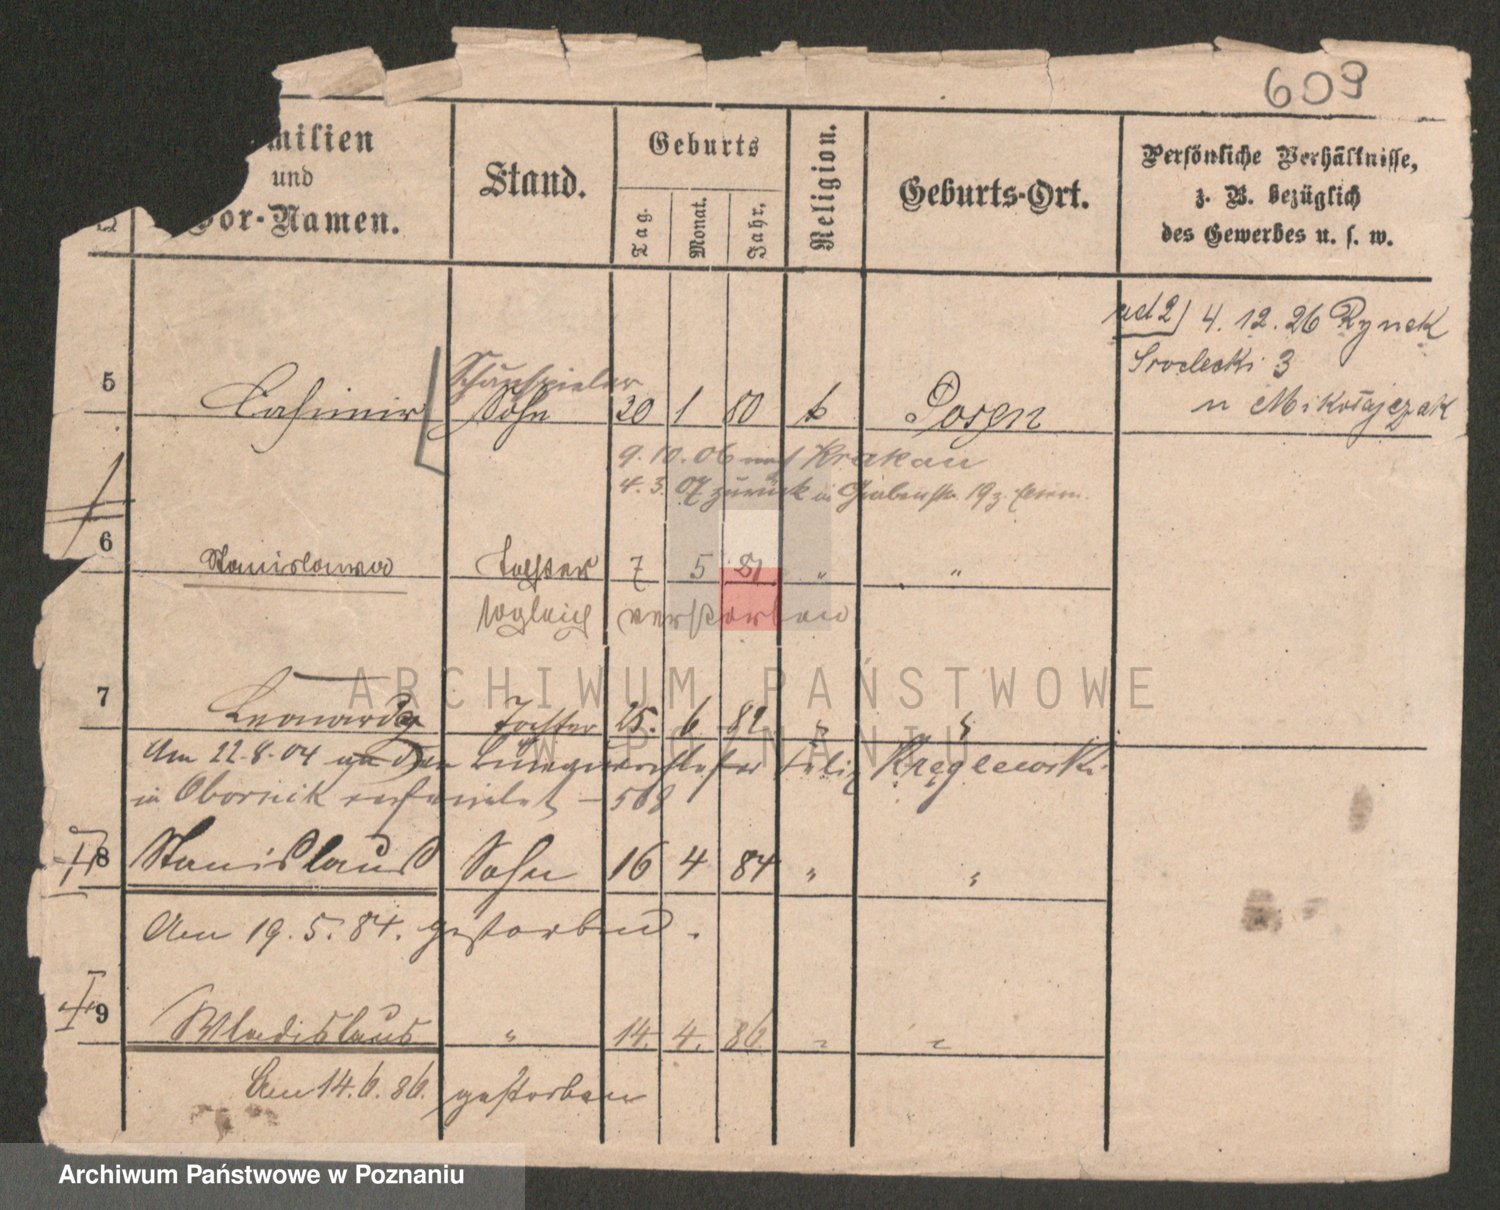 609
milien
und
or-Namen.
Stand.
Geburts
Tag.
Monat.
Jahr.
Religion.
Geburts-Ort.
Persönliche Verhältnisse,
z. B. bezüglich
des Gewerbes u. s. w.
ad 2) 4. 12. 26 Rynek
Srodecki 3
u Mikołajczak
Schauspieler
5 Casimir Sohn 20 1 80 k Posen
9. 10. 06 nach Krakau
4. 3. 07 zurück in Grabenstr. 19
6 Stanislawa Tochter 7 5 81 " "
sogleich verstorben
7 Leonarda Tochter 25. 6 82 " "
Am 22.8.04 an den Felix Kręglewski
in Obornik verheiratet – 568
8 Stanislaus Sohn 16 4 84 " "
Am 19. 5. 84. gestorben.
9 Wladislaus " 14. 4. 86. " "
Am 14. 6. 86. gestorben
ARCHIWUM PAŃSTWOWE
W POZNANIU
Archiwum Państwowe w Poznaniu